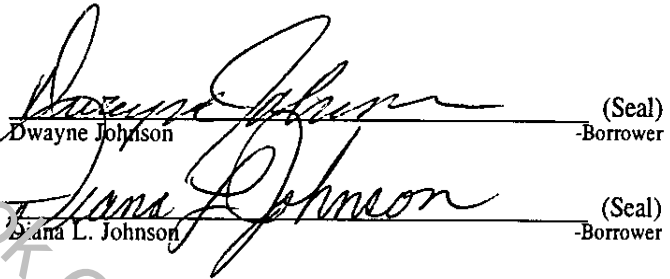 Dwayne Johnson (Seal)
Dwayne Johnson -Borrower
Diana L Johnson (Seal)
Diana L. Johnson -Borrower